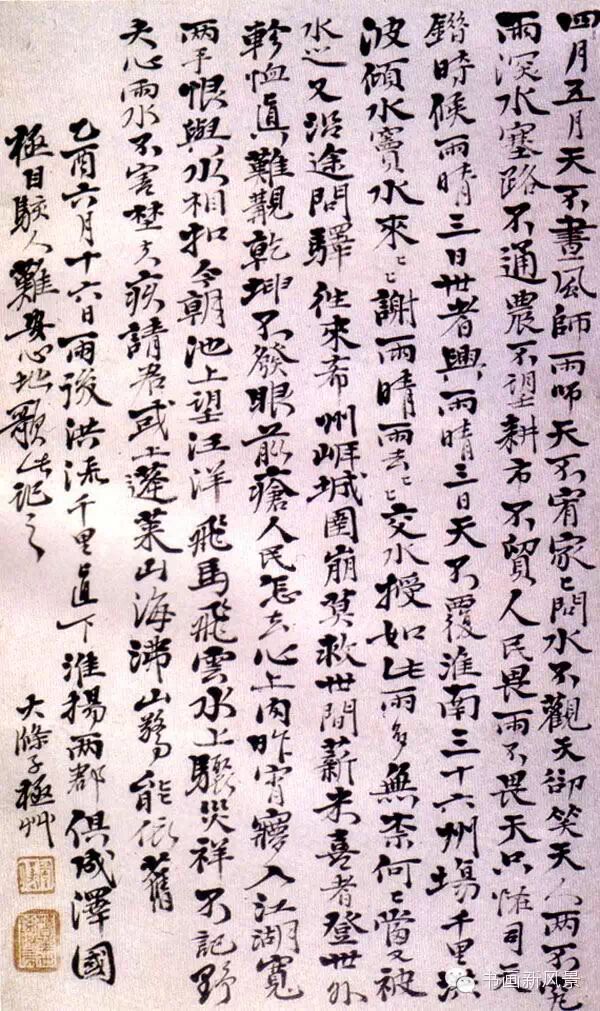 四月五月天不晝風師雨師天不宥家〻問水不觀天卻笑天人兩不
雨深水塞路不通農不望耕市不貿人民畏雨不畏天只恠司
時候雨晴三日世者興雨晴三日天不覆淮南三十六州塲千里洪
波傾水竇水來〻謝雨晴雨去〻交水授如此雨多無柰何〻當又被
水之又沿途問驛徃來希州崕城圍崩莫救世間薪米喜者登世外
軫恤真難覩乾坤不發眼前瘡人民怎去心上肉昨宵寢入江湖寬
兩手恨與水相扣今朝池上望汪洋飛馬飛雲水上驟災祥不記野
夫心雨水不害埜夫疾請君或上蓬萊山海沸山能依舊
乙酉六月十六日雨後洪流千里直下淮揚兩郡俱成澤國
極目駭人難安心地歌此記之
大滌子極艸
书画新风景